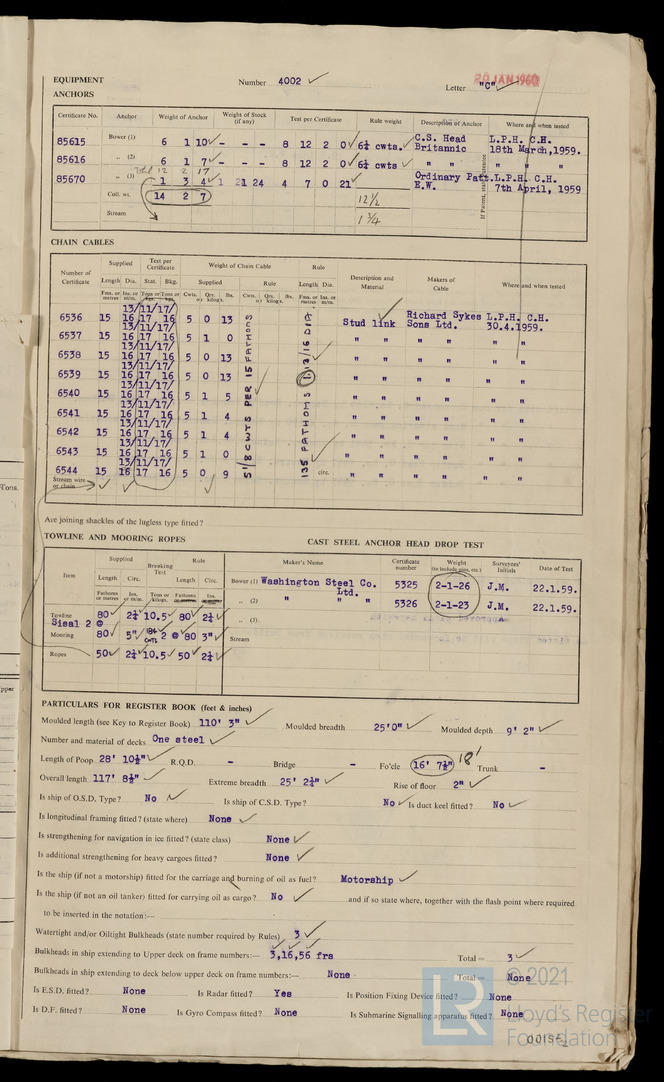 EQUIPMENT Number 4002 Letter "C" 20 JAN 1960
ANCHORS
Certificate No. Anchor Weight of Anchor Weight of Stock (if any) Test per Certificate Rule weight Description of Anchor Where and when tested
85615 Bower (1) 6 1 10 - - - 8 12 2 0 6¼ cwts. C.S. Head Britannic L.P.H. C.H. 18th March, 1959.
85616 „ (2) 6 1 7 - - - 8 12 2 0 6¼ cwts " " " "
Total 12 2 17
85670 „ (3) 1 3 4 1 21 24 4 7 0 21 Ordinary Patt. E.W. L.P.H. C.H. 7th April, 1959
Coll. wt. 14 2 7 12½
Stream 1¾
CHAIN CABLES
Number of Certificate Supplied Test per Certificate Weight of Chain Cable Rule Description and Material Makers of Cable Where and when tested
Length Dia. Stat. Bkg. Supplied Rule Length Dia.
Fms. or metres Ins. or m/m. Tons or kgs. Tons or kgs. Cwts. or Qrs. kilogs. lbs. Cwts. or Qrs. kilogs. lbs. Fms. or metres Ins. or m/m.
13/11/17/
6536 15 16 17 16 5 0 13 Stud link Richard Sykes Sons Ltd. L.P.H. C.H. 30.4.1959.
13/11/17/
6537 15 16 17 16 5 1 0 " " " " "
13/11/17/
6538 15 16 17 16 5 0 13 " " " " "
13/11/17/
6539 15 16 17 16 5 0 13 " " " " "
13/11/17/
6540 15 16 17 16 5 1 5 " " " " "
13/11/17/
6541 15 16 17 16 5 1 4 " " " " "
13/11/17/
6542 15 16 17 16 5 1 4 " " " " "
13/11/17/
6543 15 16 17 16 5 1 0 " " " " "
13/11/17/
6544 15 16 17 16 5 0 9 " " " " "
5 1/8 CWTS PER 15 FATHOMS
135 FATHOMS 13/16 DIA
Stream wire or chain circ.
Are joining shackles of the lugless type fitted?
TOWLINE AND MOORING ROPES
Item Supplied Breaking Test Rule
Length Circ. Length Circ.
Fathoms or metres Ins. or m/m. Tons or kilogs. Fathoms or metres Ins. or m/m.
Towline 80 2¼ 10.5 80 2¼
Sisal 2 @
Mooring 80 5" 184 cwts 2 @ 80 3"
Ropes 50 2¼ 10.5 50 2¼
CAST STEEL ANCHOR HEAD DROP TEST
Maker's Name Certificate number Weight (to include pins, etc.) Surveyors' Initials Date of Test
Bower (1) Washington Steel Co. Ltd. 5325 2-1-26 J.M. 22.1.59.
„ (2) " " " 5326 2-1-23 J.M. 22.1.59.
„ (3)
Stream
PARTICULARS FOR REGISTER BOOK (feet & inches)
Moulded length (see Key to Register Book) 110' 3" Moulded breadth 25'0" Moulded depth 9' 2"
Number and material of decks One steel
Length of Poop 28' 10½" R.Q.D. - Bridge - Fo'cle 16' 7½" 18' Trunk -
Overall length 117' 8½" Extreme breadth 25' 2¼" Rise of floor 2"
Is ship of O.S.D. Type? No Is ship of C.S.D. Type? No Is duct keel fitted? No
Is longitudinal framing fitted? (state where) None
Is strengthening for navigation in ice fitted? (state class) None
Is additional strengthening for heavy cargoes fitted? None
Is the ship (if not a motorship) fitted for the carriage and burning of oil as fuel? Motorship
Is the ship (if not an oil tanker) fitted for carrying oil as cargo? No and if so state where, together with the flash point where required
to be inserted in the notation:—
Watertight and/or Oiltight Bulkheads (state number required by Rules) 3
Bulkheads in ship extending to Upper deck on frame numbers:— 3,16,56 frs Total = 3
Bulkheads in ship extending to deck below upper deck on frame numbers:— None Total = None
Is E.S.D. fitted? None Is Radar fitted? Yes Is Position Fixing Device fitted? None
Is D.F. fitted? None Is Gyro Compass fitted? None Is Submarine Signalling apparatus fitted? None
© 2021
Lloyd's Register
Foundation
LR
Tons.
upper